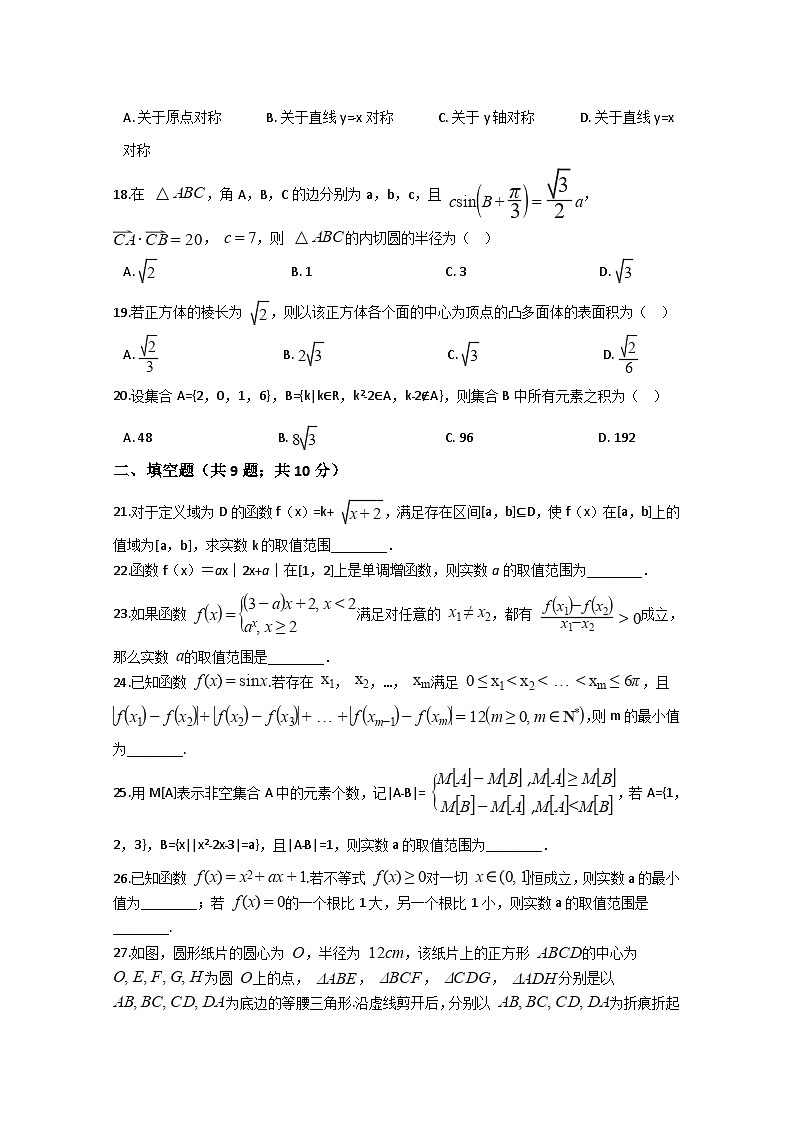 A. 关于原点对称 B. 关于直线 y=-x 对称 C. 关于 y 轴对称 D. 关于直线 y=x
对称
18.在 △ABC,角 A,B,C 的边分别为 a,b,c,且 csin(B+π/3)=√3/2 a,
CA·CB=20, c=7,则 △ABC的内切圆的半径为( )
A. √2 B. 1 C. 3 D. √3
19.若正方体的棱长为 √2,则以该正方体各个面的中心为顶点的凸多面体的表面积为( )
A. √2/3 B. 2√3 C. √3 D. √2/6
20.设集合 A={2,0,1,6},B={k|k∈R,k²-2∈A,k-2∉A},则集合 B 中所有元素之积为( )
A. 48 B. 8√3 C. 96 D. 192
二、填空题(共 9 题;共 10 分)
21.对于定义域为 D 的函数 f(x)=k+ √x+2,满足存在区间[a,b]⊆D,使 f(x)在[a,b]上的
值域为[a,b],求实数 k 的取值范围________.
22.函数 f(x)=ax|2x+a|在[1,2]上是单调增函数,则实数 a 的取值范围为________.
23.如果函数 f(x)={(3-a)x+2, x<2 aˣ, x≥2 满足对任意的 x₁≠x₂,都有 f(x₁)-f(x₂)/x₁-x₂ >0成立,
那么实数 a的取值范围是________.
24.已知函数 f(x)=sinx.若存在 x₁, x₂,…, xₘ满足 0≤x₁<x₂<…<xₘ≤6π,且
|f(x₁)-f(x₂)|+|f(x₂)-f(x₃)|+…+|f(xₘ₋₁)-f(xₘ)|=12(m≥0, m∈N*),则 m 的最小值
为________.
25.用 M[A]表示非空集合 A 中的元素个数,记|A-B|= {M[A]-M[B],M[A]≥M[B] M[B]-M[A],M[A]<M[B],若 A={1,
2,3},B={x||x²-2x-3|=a},且|A-B|=1,则实数 a 的取值范围为________.
26.已知函数 f(x)=x²+ax+1.若不等式 f(x)≥0对一切 x∈(0,1]恒成立,则实数 a 的最小
值为________;若 f(x)=0的一个根比 1 大,另一个根比 1 小,则实数 a 的取值范围是
________.
27.如图,圆形纸片的圆心为 O,半径为 12cm,该纸片上的正方形 ABCD的中心为
O, E, F, G, H为圆 O上的点, ΔABE, ΔBCF, ΔCDG, ΔADH分别是以
AB, BC, CD, DA为底边的等腰三角形.沿虚线剪开后,分别以 AB, BC, CD, DA为折痕折起